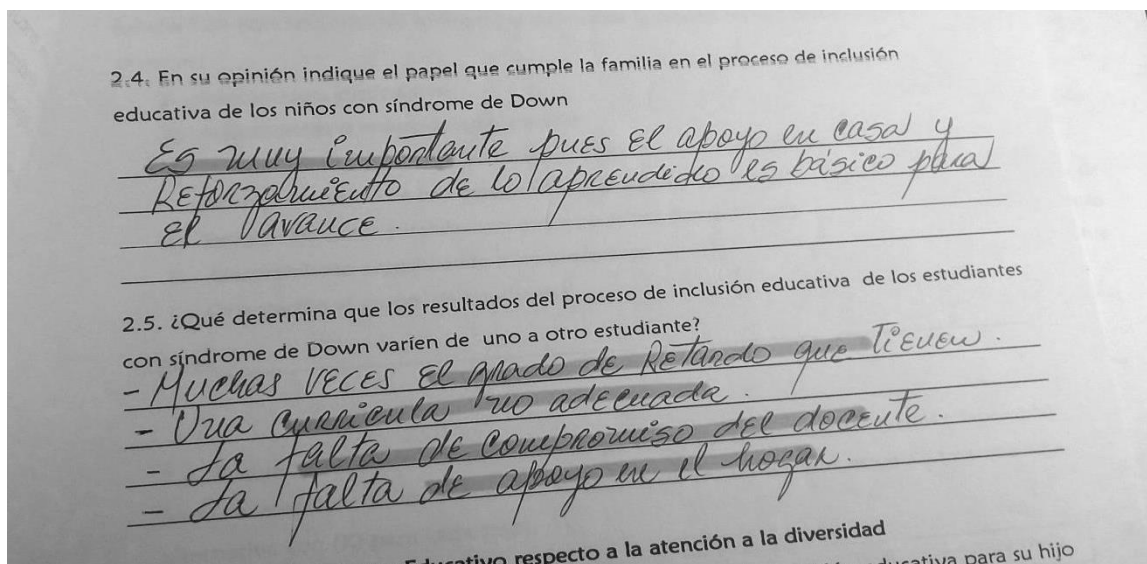 2.4. En su opinión indique el papel que cumple la familia en el proceso de inclusión
educativa de los niños con síndrome de Down
Es muy importante pues el apoyo en casa y
Reforzamiento de lo aprendido es básico para
el avance.
2.5. ¿Qué determina que los resultados del proceso de inclusión educativa de los estudiantes
con síndrome de Down varíen de uno a otro estudiante?
- Muchas veces el grado de Retardo que Tienen.
- Una curricula no adecuada.
- La falta de compromiso del docente.
- La falta de apoyo en el hogar.
respecto a la atención a la diversidad
para su hijo